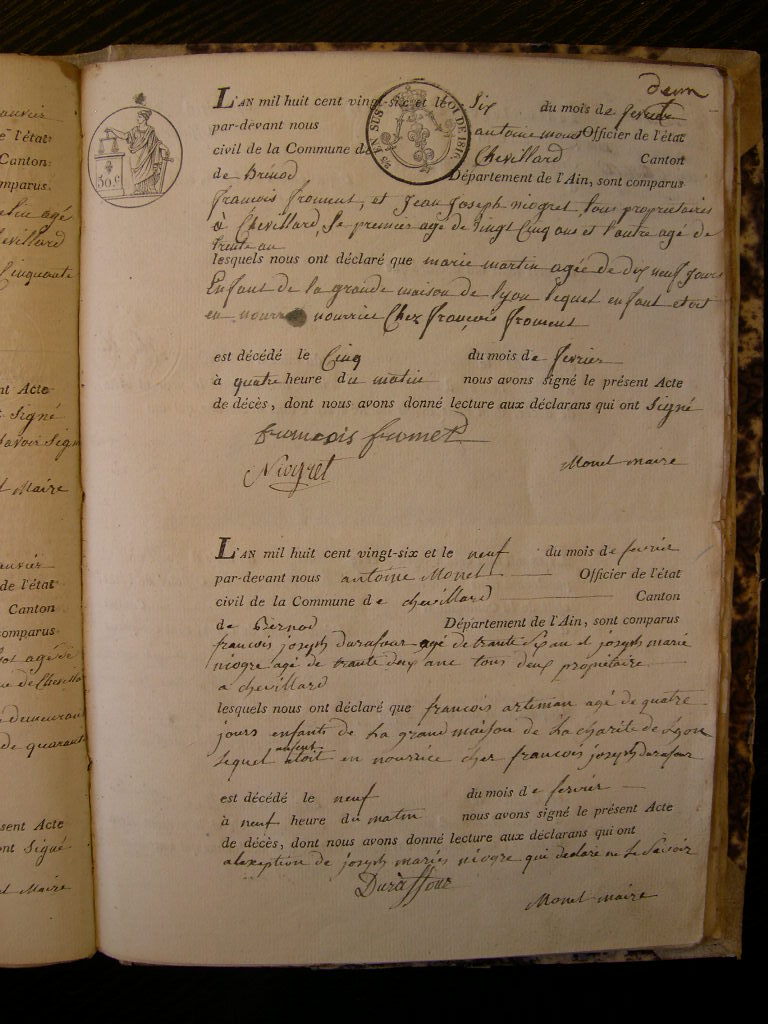 deux
L'AN mil huit cent vingt-six et le Six du mois de fevrier
par-devant nous antoine monet Officier de l'état
civil de la Commune de Chevillard Canton
de Brénod Département de l'Ain, sont comparus
françois froment, et Jean Joseph niogret, tous propriétaires
à Chevillard, le premier agé de vingt Cinq ans et l'autre agé de
trente an
lesquels nous ont déclaré que marie martin agée de dix neuf jours
Enfant de la grande maison de lyon lequel enfant etoit
en nourrice Chez françois froment
est décédé le Cinq du mois de fevrier
à quatre heure du matin nous avons signé le présent Acte
de décès, dont nous avons donné lecture aux déclarans qui ont Signé
françois fromet
Niogret
Monet maire
L'AN mil huit cent vingt-six et le neuf du mois de fevrier
par-devant nous antoine Monet Officier de l'état
civil de la Commune de chevillard Canton
de Bernod Département de l'Ain, sont comparus
francois joseph durafour agé de trante Six an et joseph marie
niogre agé de trante deux ane tous deux propriétaire
a chevillard
lesquels nous ont déclaré que francois arteman agé de quatre
jours enfants de La grand maison de La charite de Lyon
lequel enfent etoit en nourrice cher francois joseph durafour
est décédé le neuf du mois de fevrier
à neuf heure du matin nous avons signé le présent Acte
de décès, dont nous avons donné lecture aux déclarans qui ont
alexeption de joseph maries niogre qui declare ne Le Savoir
Duraffour
Monet maire
50 c
EN SUS
LOI DE 1816